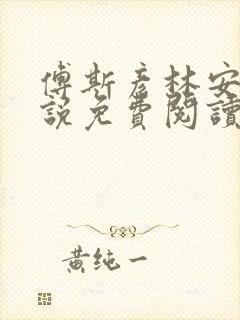 傅斯彥林安
說免費閱讀
黃纯一